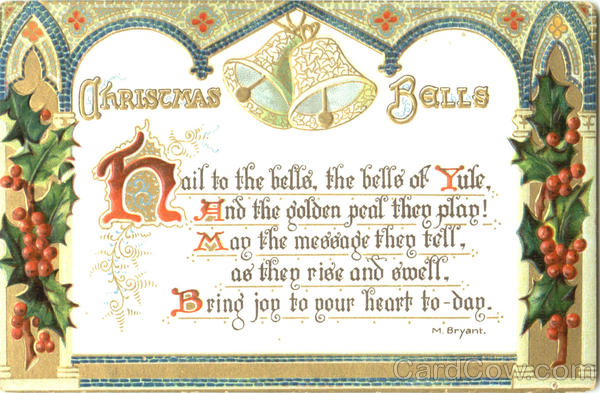 Christmas Bells
Hail to the bells, the bells of Yule,
And the golden peal they play!
May the message they tell,
as they rise and swell,
Bring joy to your heart to-day.
M. Bryant.
CardCow.com